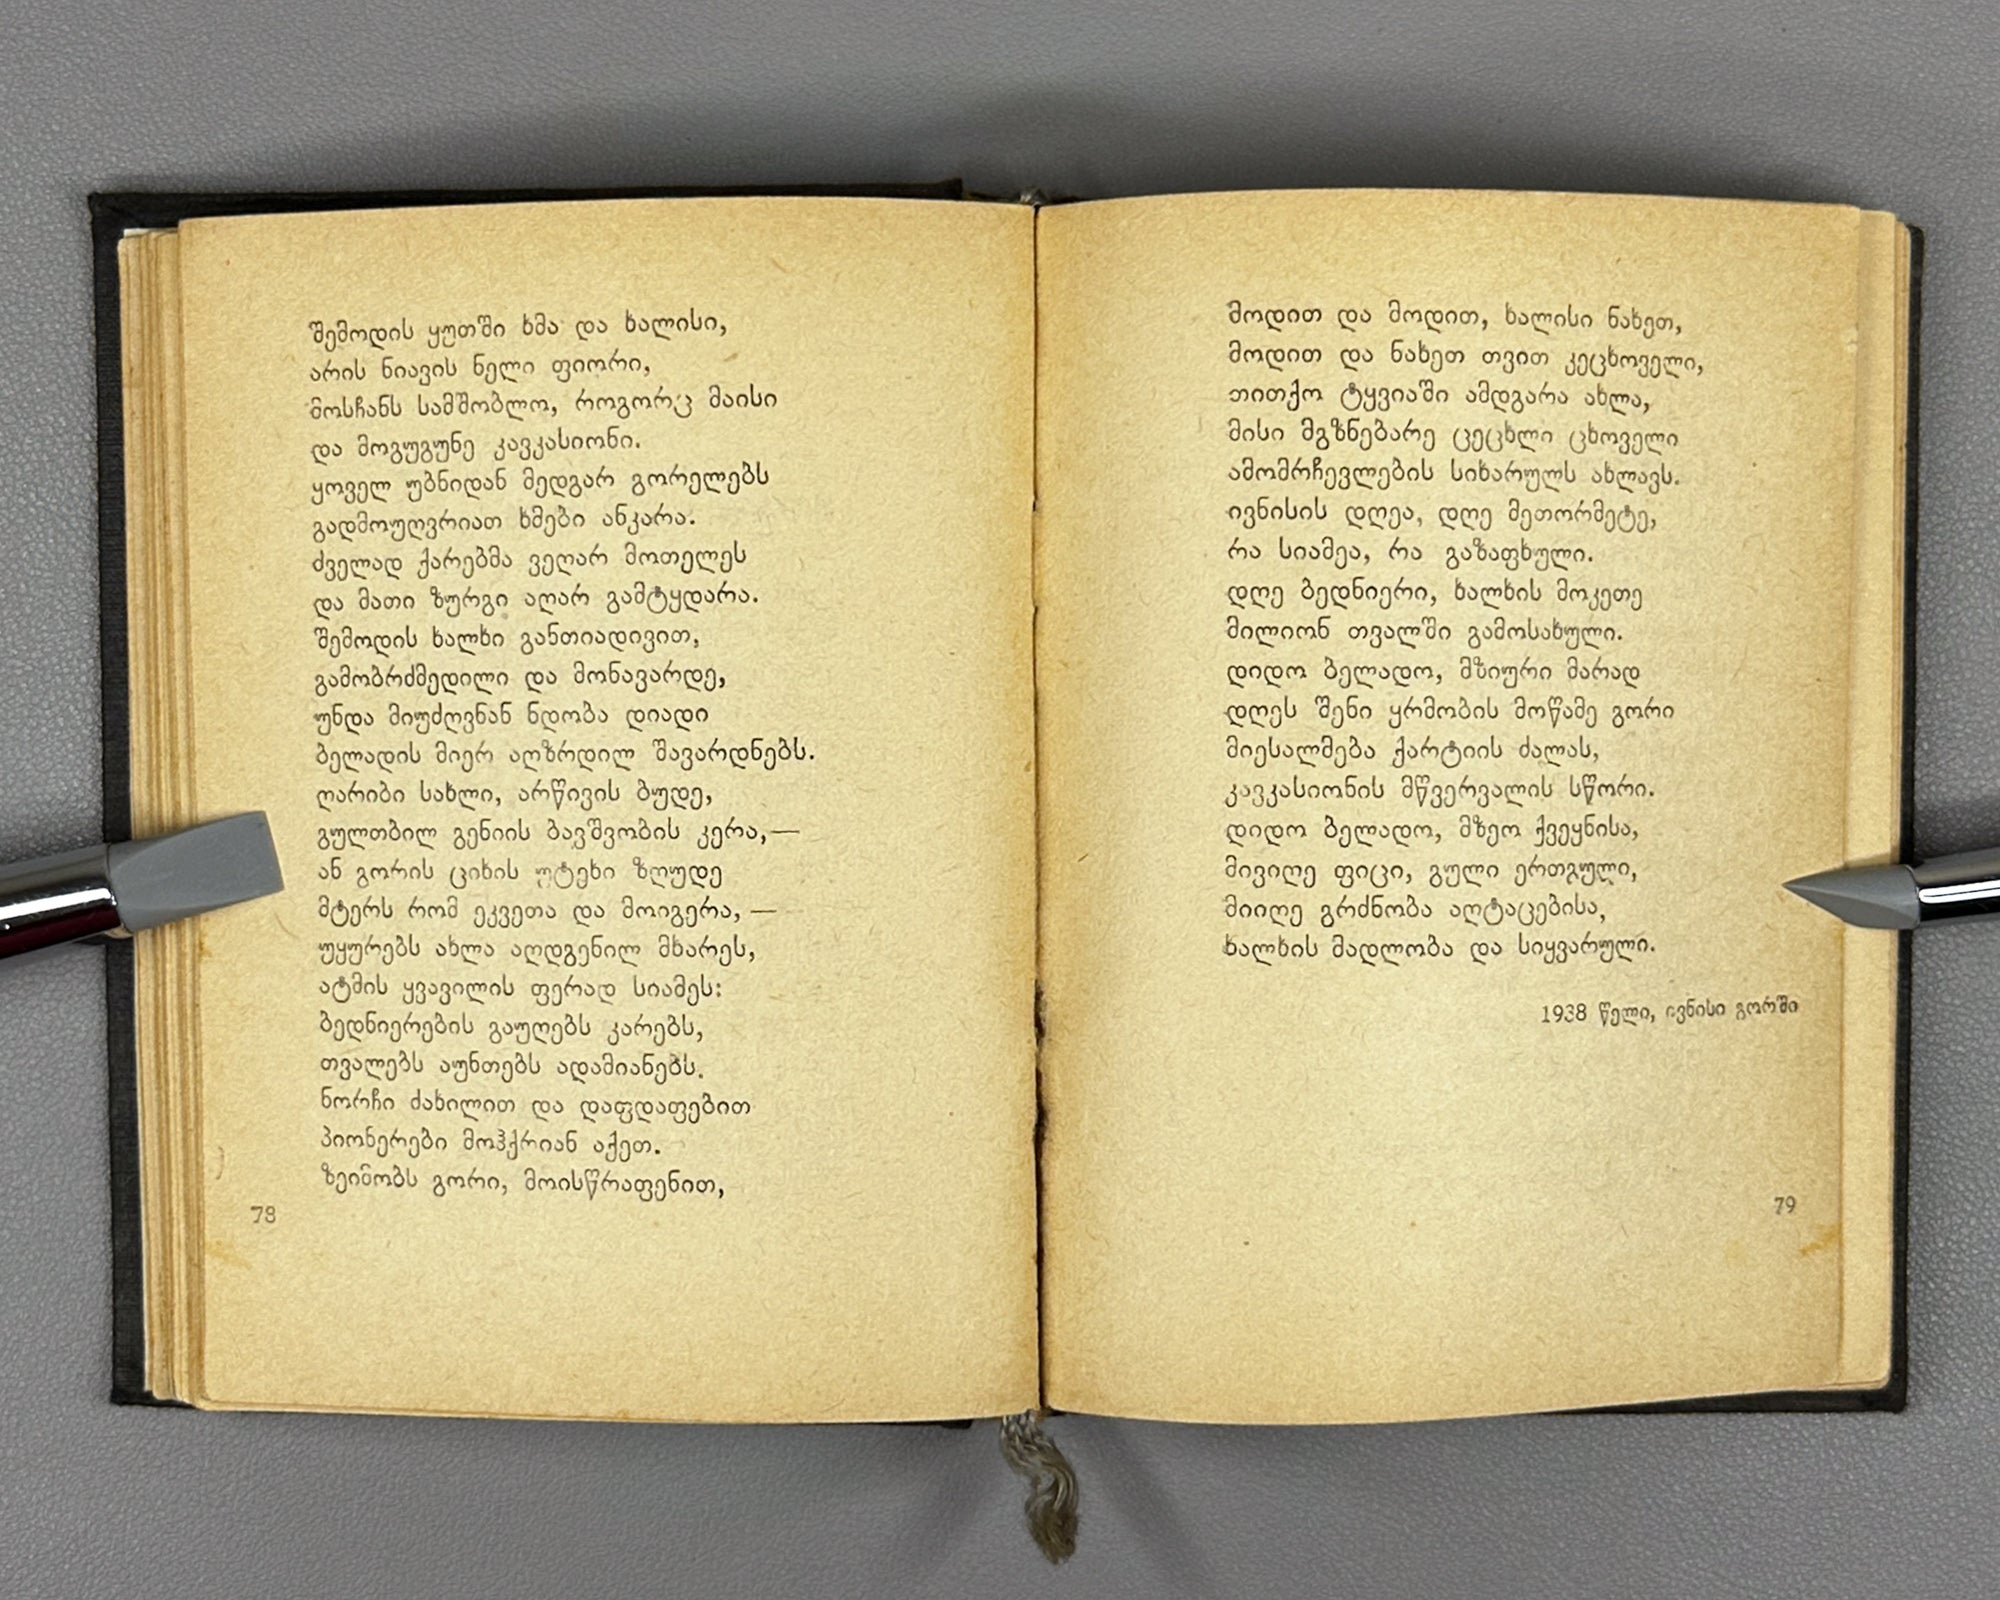 შემოდის ყუთში ხმა და ხალისი,
არის ნიავის ნელი ფიორი,
მოსჩანს სამშობლო, როგორც მაისი
და მოგუგუნე კავკასიონი.
ყოველ უბნიდან მედგარ გორელებს
გადმოუღვრიათ ხმები ანკარა.
ძველად ქარებმა ვეღარ მოთელეს
და მათი ზურგი აღარ გამტყდარა.
შემოდის ხალხი განთიადივით,
გამობრძმედილი და მონავარდე,
უნდა მიუძღვნან ნდობა დიადი
ბელადის მიერ აღზრდილ შავარდნებს.
ღარიბი სახლი, არწივის ბუდე,
გულთბილ გენიის ბავშვობის კერა,—
ან გორის ციხის უტეხი ზღუდე
მტერს რომ ეკვეთა და მოიგერა, —
უყურებს ახლა აღდგენილ მხარეს,
ატმის ყვავილის ფერად სიამეს:
ბედნიერების გაუღებს კარებს,
თვალებს აუნთებს ადამიანებს.
ნორჩი ძახილით და დაფდაფებით
პიონერები მოჰქრიან აქეთ.
ზეიმობს გორი, მოისწრაფენით,
78
მოდით და მოდით, ხალისი ნახეთ,
მოდით და ნახეთ თვით კეცხოველი,
თითქო ტყვიაში ამდგარა ახლა,
მისი მგზნებარე ცეცხლი ცხოველი
ამომრჩევლების სიხარულს ახლავს.
ივნისის დღეა, დღე მეთორმეტე,
რა სიამეა, რა გაზაფხული.
დღე ბედნიერი, ხალხის მოკეთე
მილიონ თვალში გამოსახული.
დიდო ბელადო, მზიური მარად
დღეს შენი ყრმობის მოწამე გორი
მიესალმება ქარტიის ძალას,
კავკასიონის მწვერვალის სწორი.
დიდო ბელადო, მზეო ქვეყნისა,
მივიღე ფიცი, გული ერთგული,
მიიღე გრძნობა აღტაცებისა,
ხალხის მადლობა და სიყვარული.
1938 წელი, ივნისი გორში
79